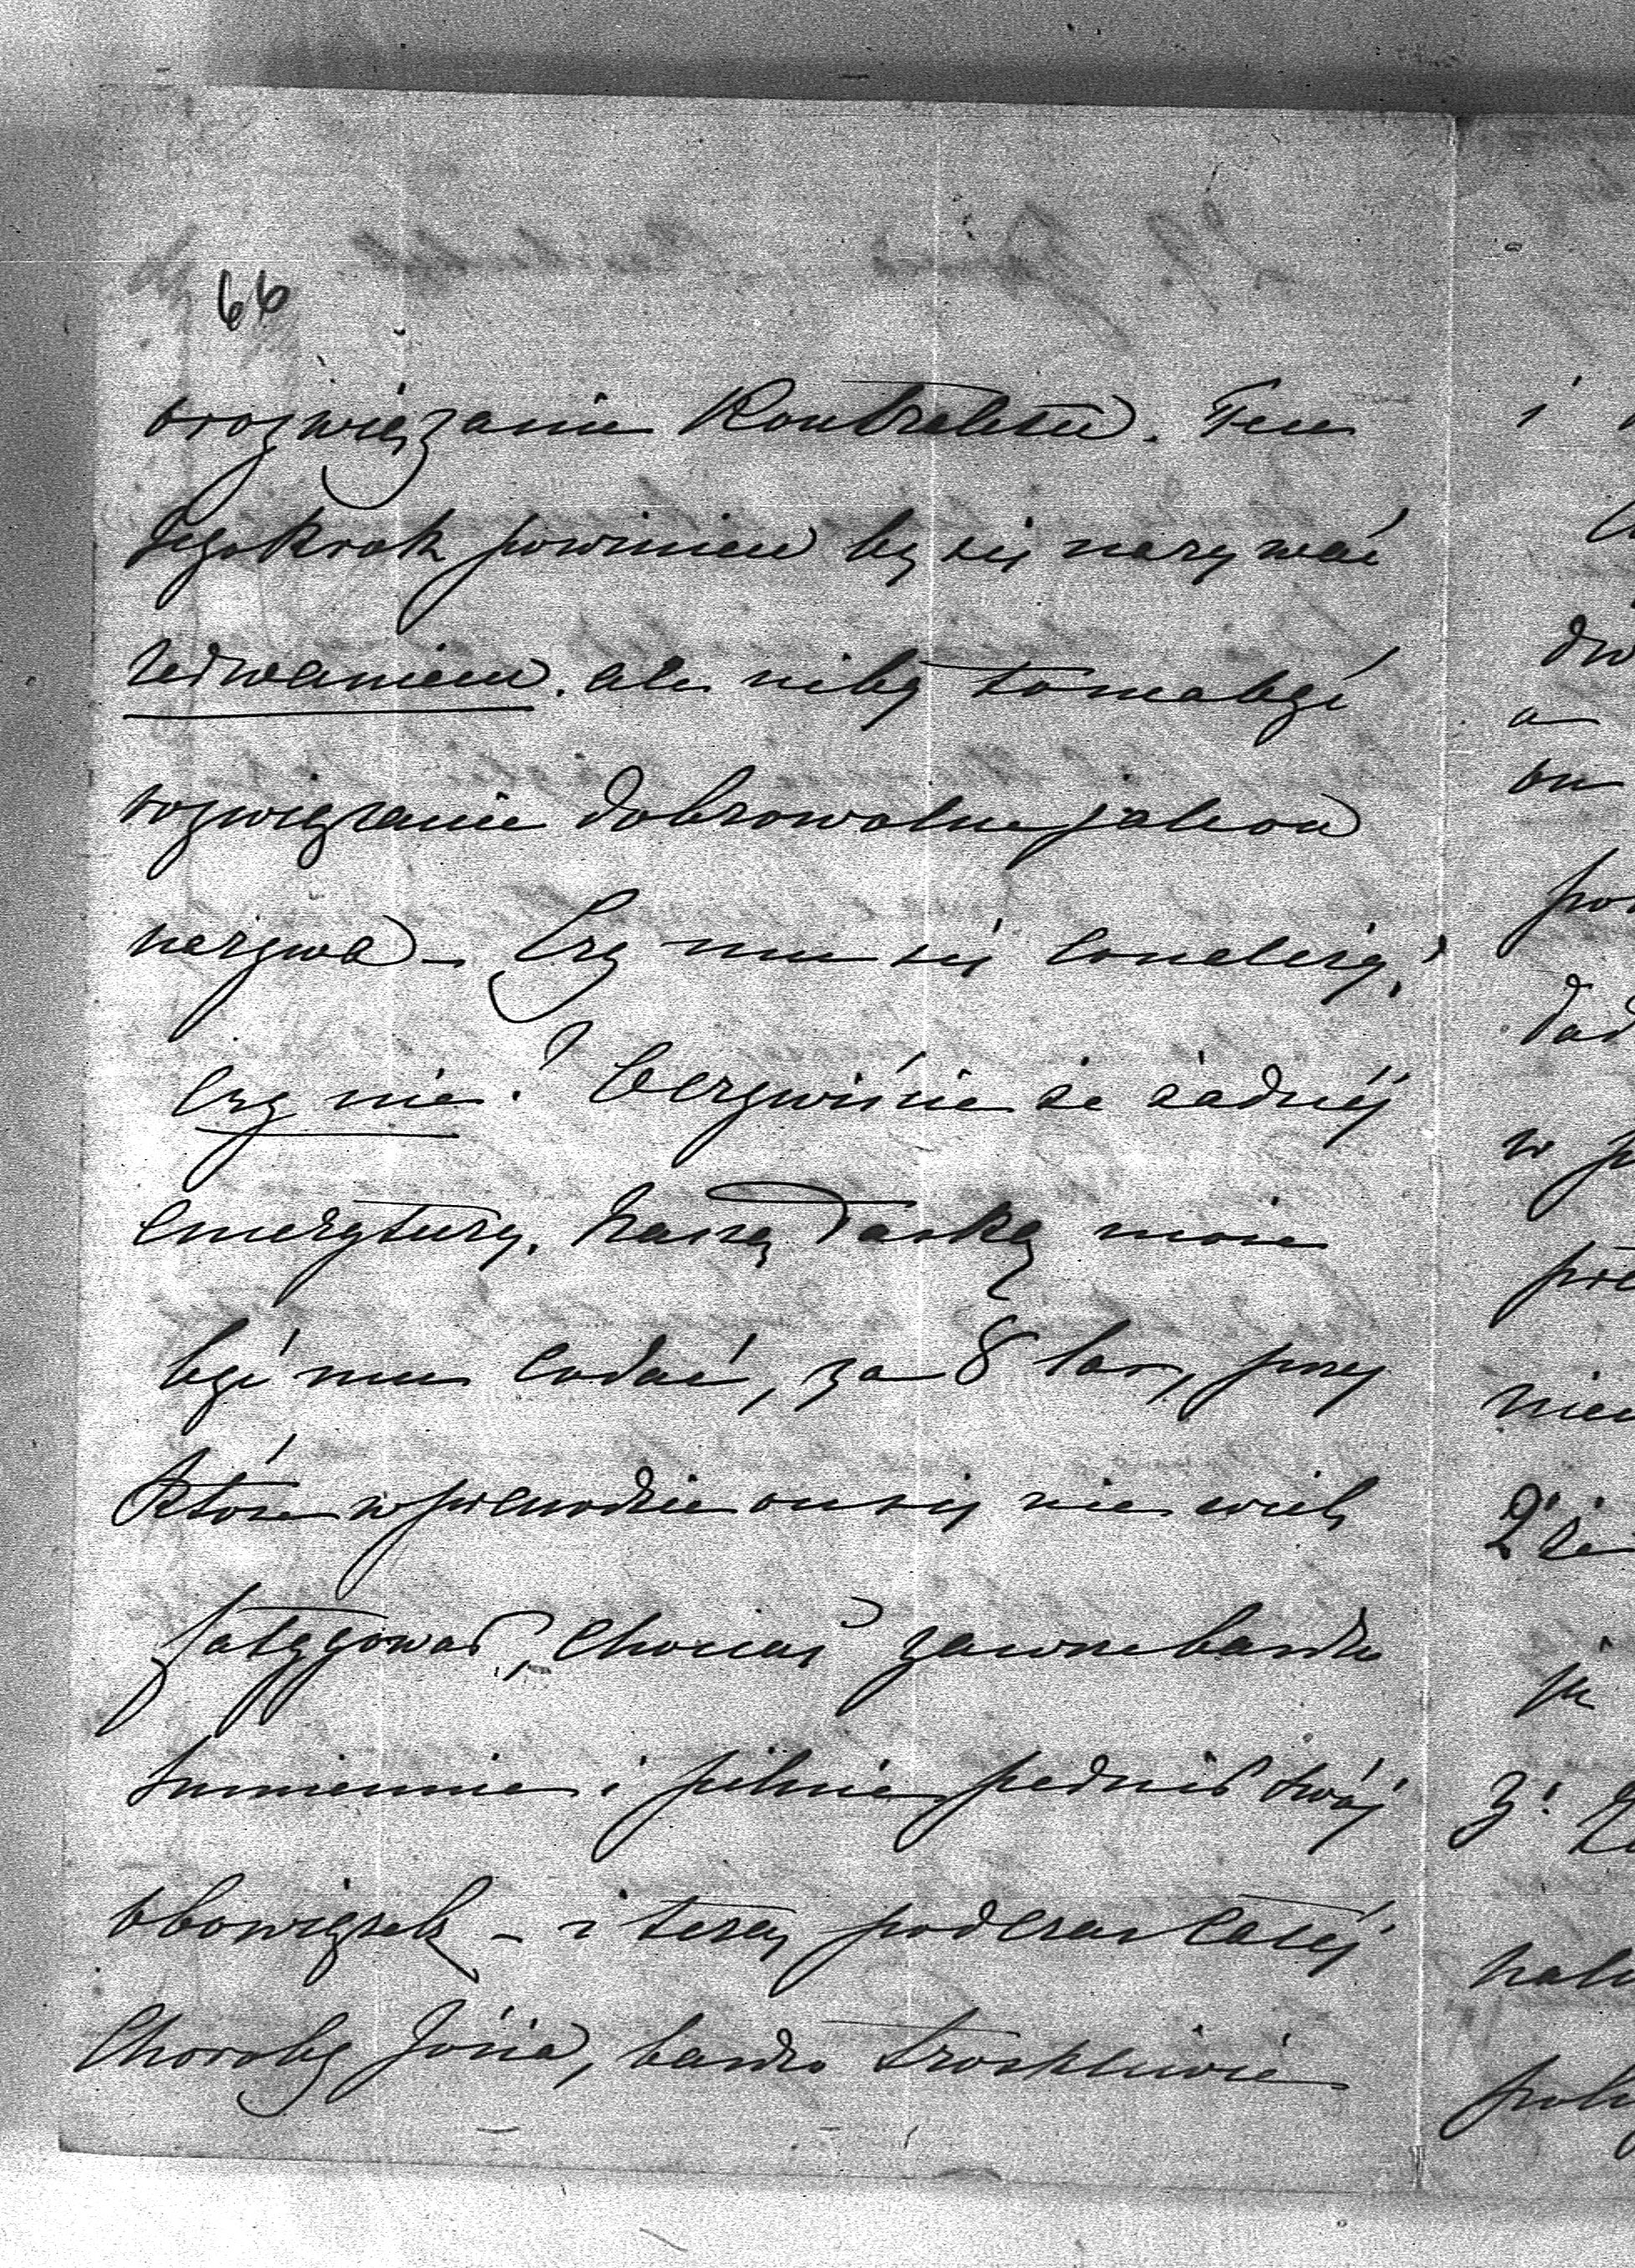 66
o rozwiązanie Kontraktu. Ten
Jego krok powinien by się nazywać
zerwaniem. ale niby to ma być
rozwiązanie dobrowolne jak on
nazywa – Czy mu się co należy?
czy nie? Oczywiście że żadnéj
emerytury. Naszą łaską może
być mu co dać, za 8 lat, przy
które w prawdzie on się nie wiele
fatygował, chociaż zawsze bardzo
sumiennie i pilnie pełnił swój
obowiązek – i teraz podczas całéj
Choroby Józia, bardzo troskliwie